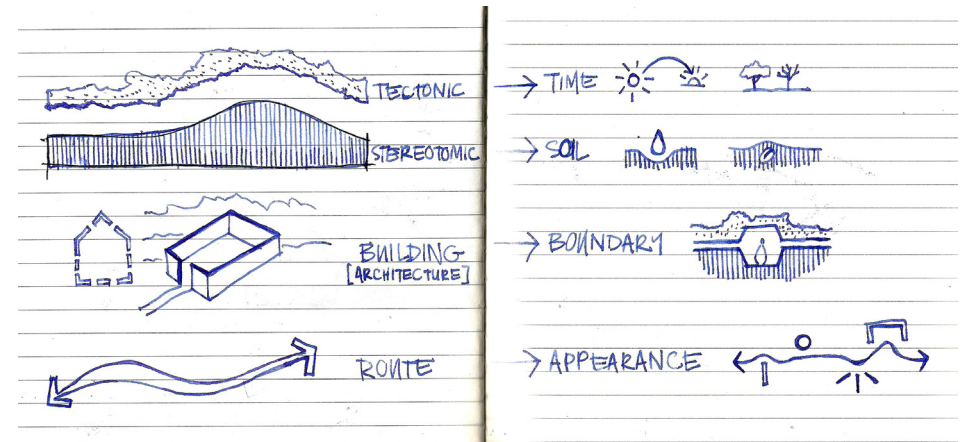 TECTONIC
STEREOTOMIC
BUILDING
[ARCHITECTURE]
ROUTE
→ TIME
→ SOIL
→ BOUNDARY
→ APPEARANCE